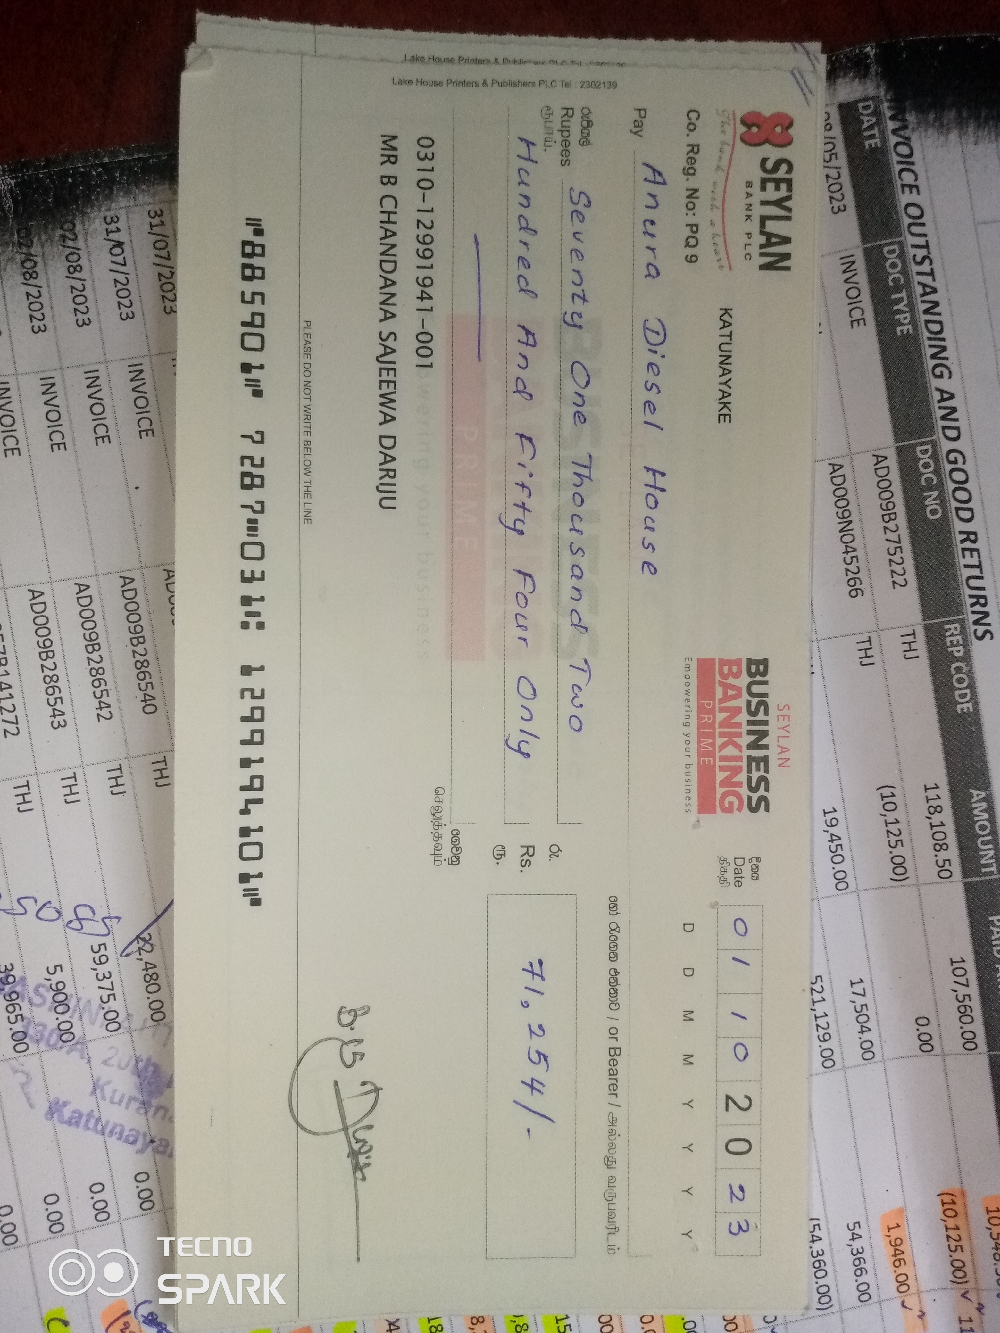 Lake House Printers & Publishers PLC Tel : 2302139
SEYLAN
BANK PLC
The bank with a heart
Co. Reg. No: PQ 9
KATUNAYAKE
SEYLAN
BUSINESS
BANKING
PRIME
Empowering your business
දිනය
Date
திகதி
01 10 2023
D D M M Y Y Y Y
Pay Anura Diesel House
හෝ රැගෙන එන්නාට / or Bearer / அல்லது வருபவரிடம்
රුපියල්
Rupees Seventy One Thousand Two
ரூபாய்
Hundred And Fifty Four Only
රු.
Rs. 71,254/-
ரூ.
ගෙවනු
செலுத்தவும்
0310-12991941-001
MR B CHANDANA SAJEEWA DARIJU
PLEASE DO NOT WRITE BELOW THE LINE
⑈885901⑈ 7287⑉031⑆ 1299194101⑈
INVOICE OUTSTANDING AND GOOD RETURNS
DATE DOC TYPE DOC NO REP CODE AMOUNT
AD009B275222 THJ 118,108.50 107,560.00
(10,125.00) 0.00 (10,125.00)
/05/2023 INVOICE AD009N045266 THJ 19,450.00 17,504.00 1,946.00
521,129.00 54,366.00
(54,360.00)
31/07/2023 INVOICE AD009B286540 THJ 22,480.00 0.00
31/07/2023 INVOICE AD009B286542 THJ 59,375.00 0.00
02/08/2023 INVOICE AD009B286543 THJ 5,900.00 0.00
02/08/2023 INVOICE 141272 THJ 39,965.00 0.00
Katunaya
TECNO
SPARK